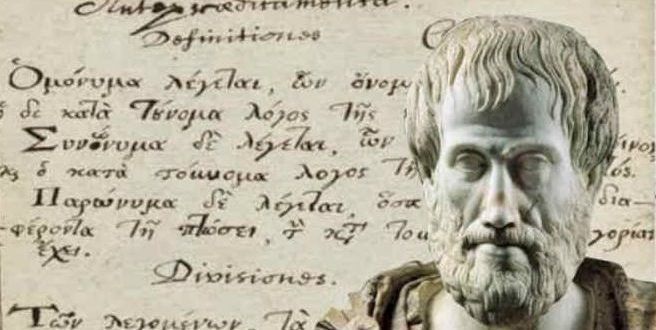 Antepraedicamenta.
Definitiones
Ὁμόνυμα λέγεται, ὧν ὄνομ
δὲ κατὰ τὔνομα λόγος τῆς
Συνώνυμα δὲ λέγεται, ὧν
ὁ κατὰ τοὔνομα λόγος τῆ
Παρώνυμα δὲ λέγεται, ὅσα δια-
φέροντα τῇ πτώσει, του γορίαν
ἔχει.
Divisiones.
Τῶν λεγομένων, τὰ